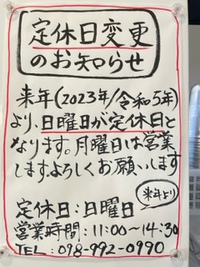 定休日変更
のお知らせ
来年(2023年/令和5年)
より、日曜日が定休日と
なります。月曜日は営業
します。よろしくお願いします
来年より
定休日:日曜日
営業時間:11:00～14:30
TEL:098-992-0990